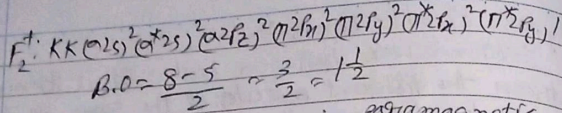 F₂⁺: KK(σ2s)²(σ*2s)²(σ2Pz)²(π2Px)²(π2Py)²(π*2Px)²(π*2Py)¹
B.O = 8-5/2 = 3/2 = 1 1/2